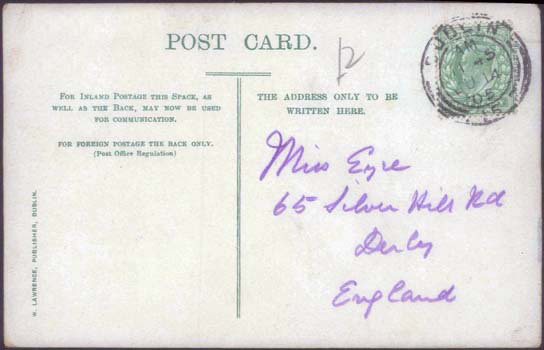 POST CARD.
12
FOR INLAND POSTAGE THIS SPACE, AS
WELL AS THE BACK, MAY NOW BE USED
FOR COMMUNICATION.
FOR FOREIGN POSTAGE THE BACK ONLY.
(Post Office Regulation)
THE ADDRESS ONLY TO BE
WRITTEN HERE.
Miss Eyre
65 Silver Hill Rd
Derby
England
W. LAWRENCE, PUBLISHER, DUBLIN.
DUBLIN